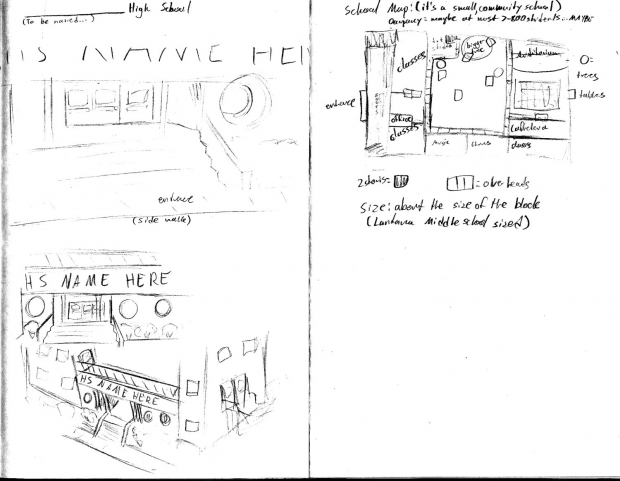 High School
(To be named...)
HS NAME HE
entrance
(side walk)
HS NAME HERE
HS NAME HERE
School Map: (it's a small, community school)
Occupancy: maybe at most 2-800 students... MAYBE
classes
bigger tree
Auditorium
O=
trees
tables
entrance
office
classes
Cafeteria
Music
Classes
classes
2 stories=
= overheads
Size: about the size of the block
(Lantana Middle school sized)